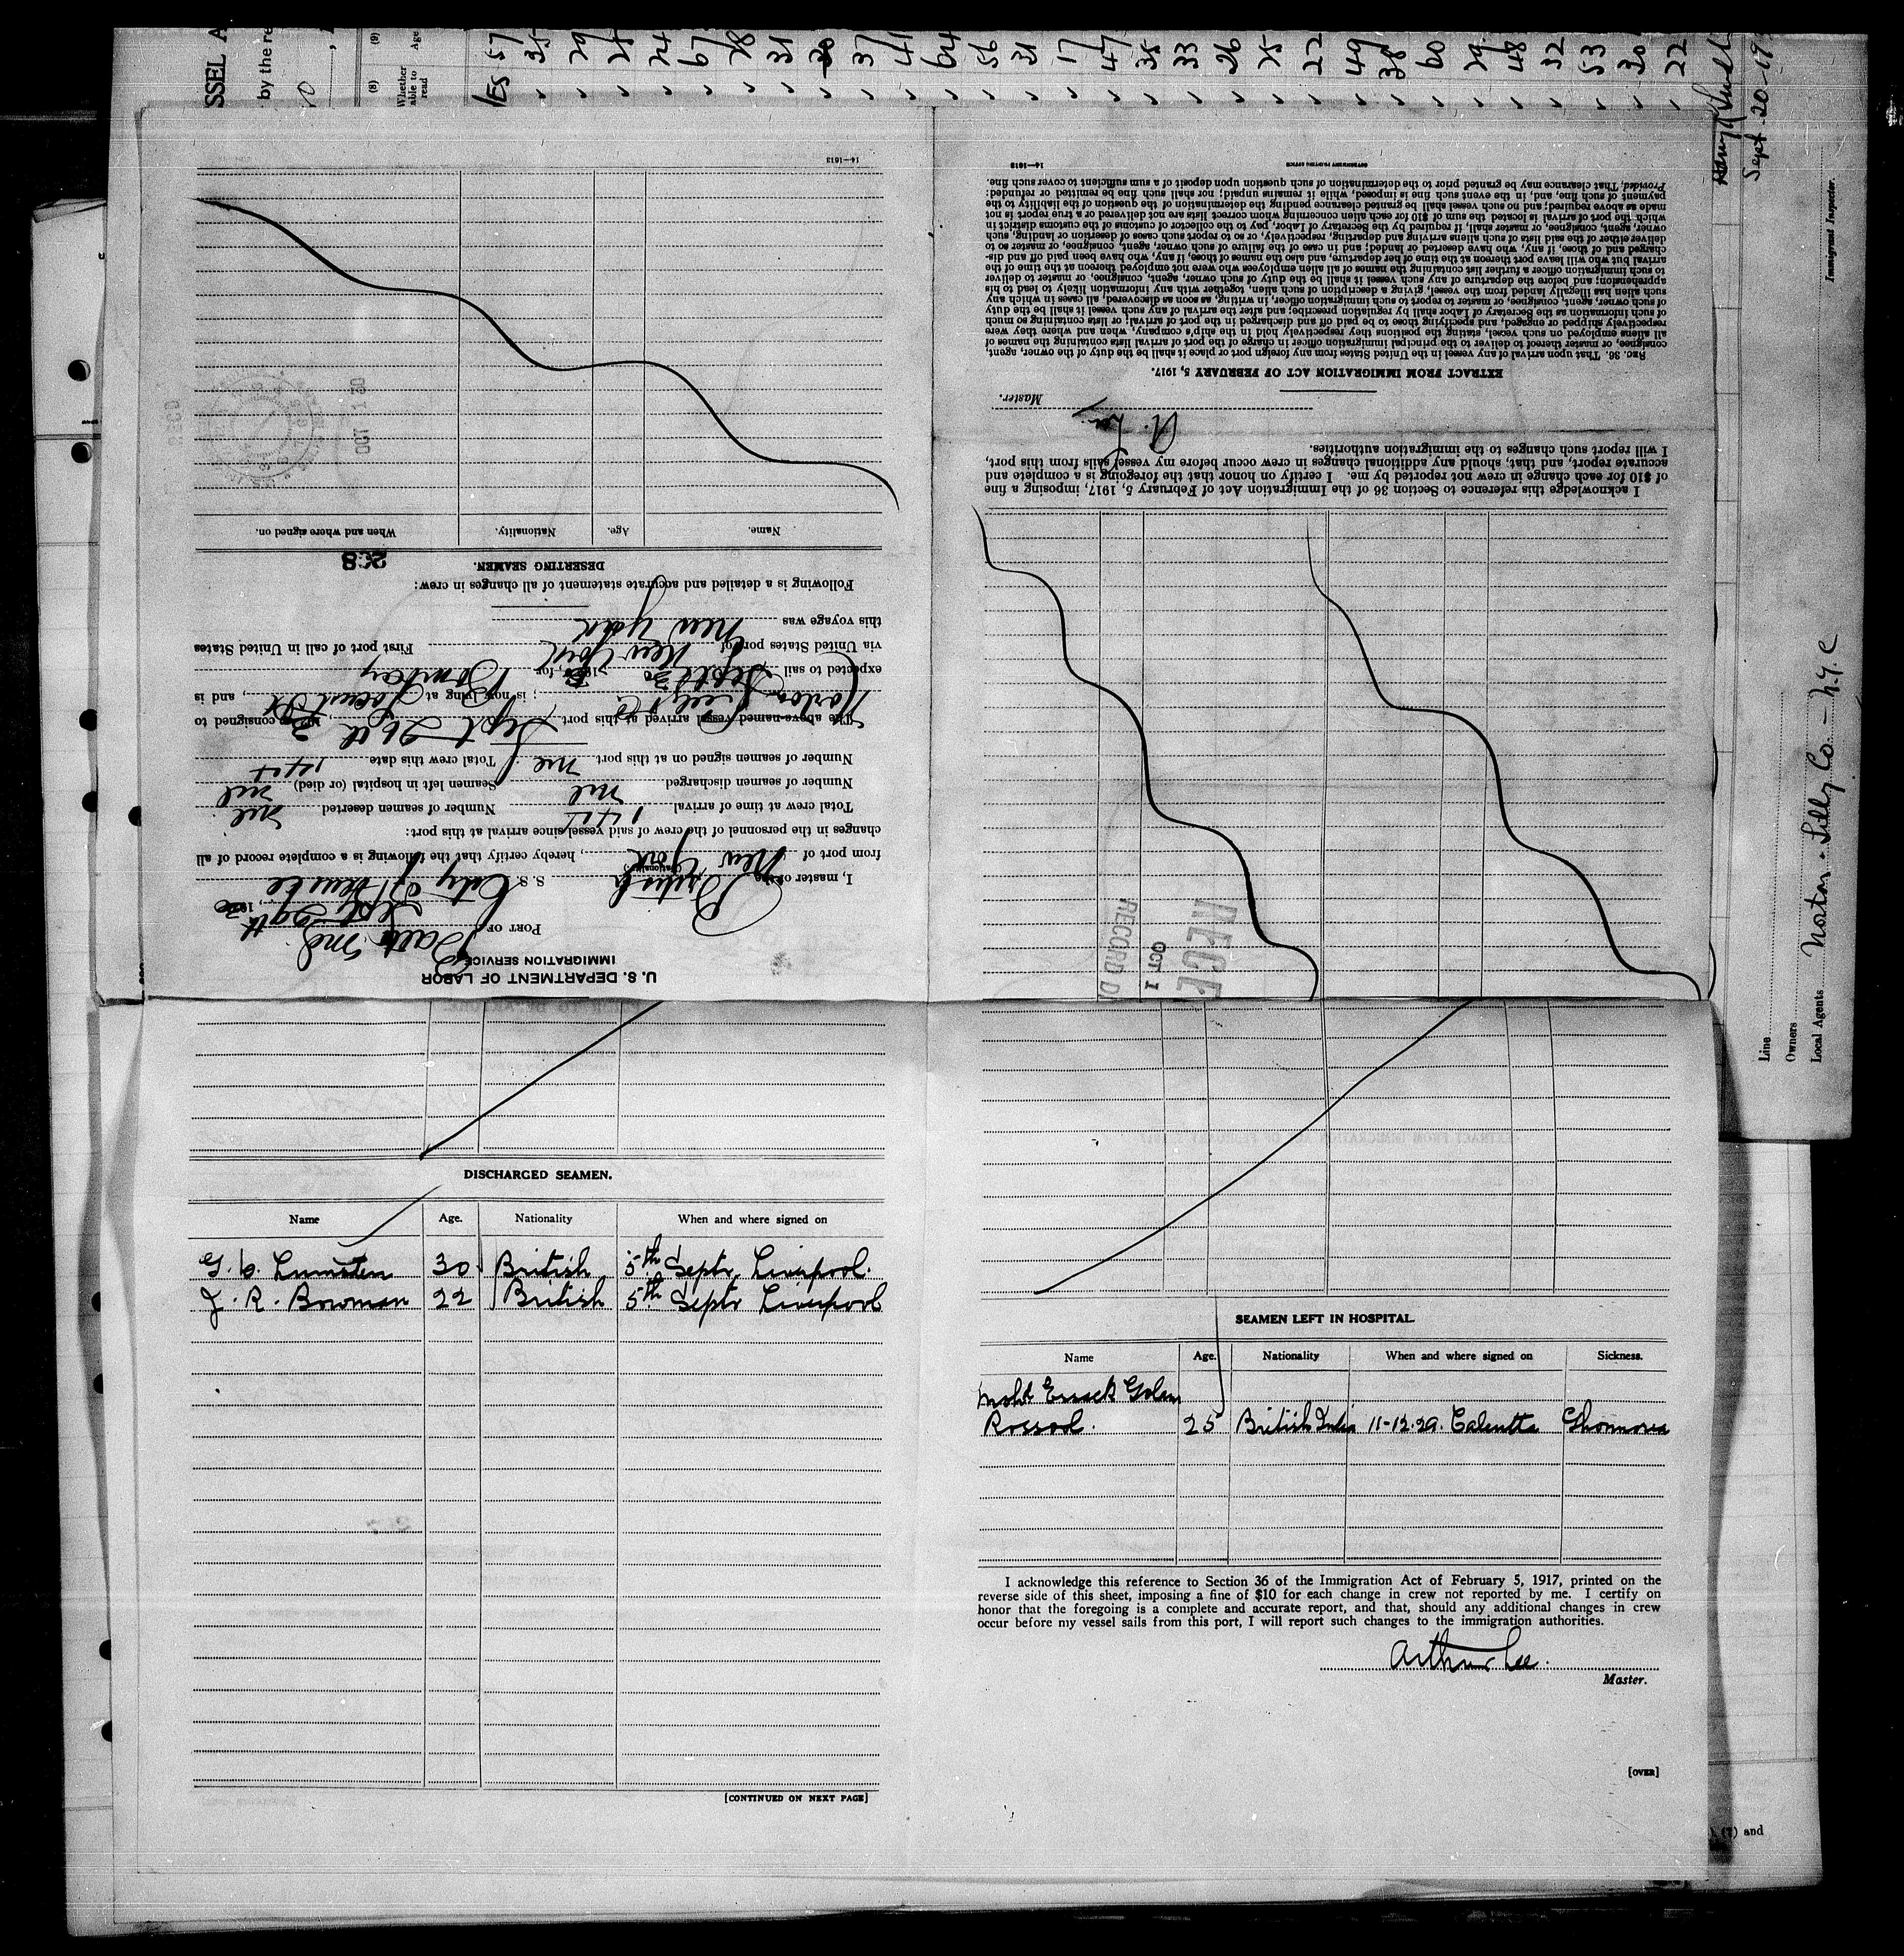 SSEL A
by the re
(9)
Age
(8)
Whether able to read
YES
57
35
29
24
67
28
31
37
41
64
56
31
17
47
35
33
26
25
22
49
38
60
29
48
32
53
30
22
Sept. 20-19
Immigrant Inspector.
Line
Owners
Local Agents Norton - Lilly Co. - N.Y.C
U. S. DEPARTMENT OF LABOR
IMMIGRATION SERVICE
PORT OF Balto Md.
Sept 29th, 1930
I, master of the British S. S. City of
(Nationality)
from port of New York, hereby certify that the following is a complete record of all
changes in the personnel of the crew of said vessel since arrival at this port:
Total crew at time of arrival Number of seamen deserted nil
Number of seamen discharged nil Seamen left in hospital (or died) nil
Number of seamen signed on at this port nil Total crew this date
The above-named vessel arrived at this port Sept 26th, consigned to
Norton Lilly Co; is now lying at Locust Pt, and is
expected to sail Sept 30, for Bombay
via United States port of New York First port of call in United States
this voyage was New York
Following is a detailed and accurate statement of all changes in crew:
DESERTING SEAMEN.
Name. Age. Nationality. When and where signed on.
OCT 1 30
14—1613
I acknowledge this reference to Section 36 of the Immigration Act of February 5, 1917, imposing a fine
of $10 for each change in crew not reported by me. I certify on honor that the foregoing is a complete and
accurate report, and that, should any additional changes in crew occur before my vessel sails from this port,
I will report such changes to the immigration authorities.
A. Lee
Master.
EXTRACT FROM IMMIGRATION ACT OF FEBRUARY 5, 1917.
SEC. 36. That upon arrival of any vessel in the United States from any foreign port or place it shall be the duty of the owner, agent,
consignee, or master thereof to deliver to the principal immigration officer in charge of the port of arrival lists containing the names of
all aliens employed on such vessel, stating the positions they respectively hold in the ship's company, when and where they were
respectively shipped or engaged, and specifying those to be paid off and discharged in the port of arrival; or lists containing so much
of such information as the Secretary of Labor shall by regulation prescribe; and after the arrival of any such vessel it shall be the duty
of such owner, agent, consignee, or master to report to such immigration officer, in writing, as soon as discovered, all cases in which any
such alien has illegally landed from the vessel, giving a description of such alien, together with any information likely to lead to his
apprehension; and before the departure of any such vessel it shall be the duty of such owner, agent, consignee, or master to deliver
to such immigration officer a further list containing the names of all alien employees who were not employed thereon at the time of the
arrival but who will leave port thereon at the time of her departure, and also the names of those, if any, who have been paid off and dis-
charged and of those, if any, who have deserted or landed; and in case of the failure of such owner, agent, consignee, or master so to
deliver either of the said lists of such aliens arriving and departing, respectively, or so to report such cases of desertion or landing, such
owner, agent, consignee, or master, shall, if required by the Secretary of Labor, pay to the collector of customs of the customs district in
which the port of arrival is located the sum of $10 for each alien concerning whom correct lists are not delivered or a true report is not
made as above required; and no such vessel shall be granted clearance pending the determination of the question of the liability to the
payment of such fine, and, in the event such fine is imposed, while it remains unpaid; nor shall such fine be remitted or refunded:
Provided, That clearance may be granted prior to the determination of such question upon deposit of a sum sufficient to cover such fine.
14—1613 GOVERNMENT PRINTING OFFICE
RECE
OCT 1
RECORD DI
DISCHARGED SEAMEN.
Name Age. Nationality When and where signed on
G. C. Lumsden 30 British 5th Septr Liverpool.
J. R. Bowman 22 British 5th Septr Liverpool
[CONTINUED ON NEXT PAGE]
SEAMEN LEFT IN HOSPITAL.
Name Age. Nationality When and where signed on Sickness.
Mohd Essack Golam
Rossool. 25 British India 11-12-29. Calcutta
I acknowledge this reference to Section 36 of the Immigration Act of February 5, 1917, printed on the
reverse side of this sheet, imposing a fine of $10 for each change in crew not reported by me. I certify on
honor that the foregoing is a complete and accurate report, and that, should any additional changes in crew
occur before my vessel sails from this port, I will report such changes to the immigration authorities.
Arthur Lee.
Master.
[OVER]
(7) and